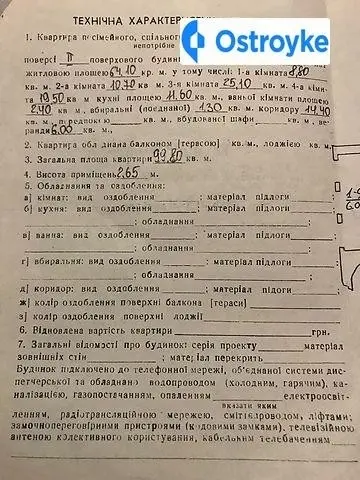 ТЕХНІЧНА ХАРАКТЕРИСТИ
Ostroyke
1. Квартира посімейного, спільного
непотрібне
поверсі II поверхового будин
житловою площею 64,10 кр. м. у тому числі: 1-а кімната 8,80
кв. м. 2-а кімната 10,70 кв м. 3-я кімната 25,10 кв. м. 4-а кімн-
та 19,50 кв м кухні площею 11,60 кв. м. ванької кімнати площею
2,40 кв м, вбиральні (поєднаної) 1,30 кв. м. коридору 14,40
кв. м. передпокою кв. м., вбудованої шафи кв. м., ве-
ранди 6,00 кв. м.,
2. Квартира обладнана балконом [терасою] кв. м., лоджією кв. м.
3. Загальна площа квартири 99,80 кв. м.
4. Висота приміщень 2,65 м.
5. Обладнання та оздоблення:
а] кімнат: вид оздоблення ; матеріал підлоги ;
б] кухня: вид оздоблення ; матеріал підлоги ;
; обладнання ;
в] ванна: вид оздоблення ; матеріал підлоги ;
; обладнання ;
г] вбиральня: вид оздоблення ; матеріал підлоги ;
; обладнання ;
д] коридор: вид оздоблення ; матеріал підоги ;
ж] колір оздоблення поверхні балкона [тераси] ;
з] колір оздоблення поверхні лоджії
6. Відновлена вартість квартири грн.
7. Загальні відомості про будинок: серія проекту матеріал
зовнішніх стін ; матеріал перекрить
Будинок підключено до телефонної мережі, об'єднаної системи дис-
петчерської та обладнано водопроводом (холодним, гарячим), ка-
налізацією, газопостачанням, опаленням електроосвіт-
вказати яким
ленням, радіотрансляційною мережею, сміттєпроводом, ліфтами;
замочнопереговірними пристроями (кодовими замками), телевізійною
антеною колективного користування, кабельним телебаченням